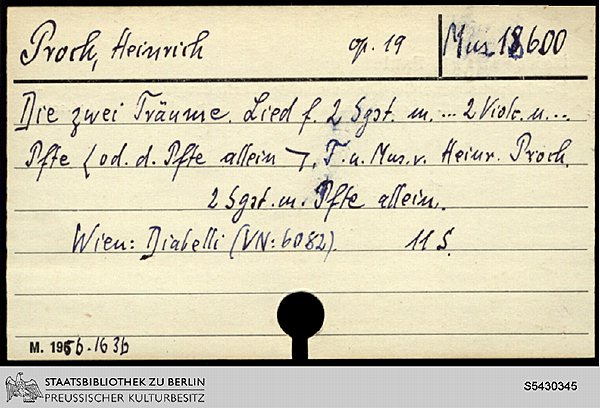 Proch, Heinrich op. 19 Mus 18600
Die zwei Träume. Lied f. 2 Sgst. m. ... 2 Viol. u. ...
Pfte (od. d. Pfte allein). T. u. Mus. v. Heinr. Proch.
2 Sgst. m. Pfte allein.
Wien: Diabelli (VN: 6082). 11 S.
M. 1956.1636
STAATSBIBLIOTHEK ZU BERLIN
PREUSSISCHER KULTURBESITZ
S5430345